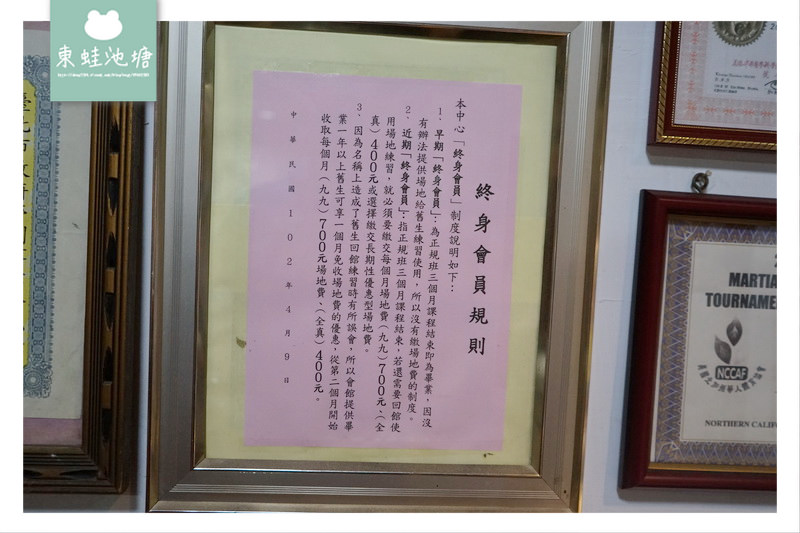 東蛙池塘
終身會員規則
本中心「終身會員」制度說明如下：
1、早期「終身會員」：為正規班三個月課程結束即為畢業，因沒
有辦法提供場地給舊生練習使用，所以沒有繳場地費的制度。
2、近期「終身會員」：指正規班三個月課程結束，若還需要回館使
用場地練習，就必須要繳交每個月場地費(九九)700元、(全
真)400元或選擇繳交長期性優惠型場地費。
3、因為名稱上造成了舊生回館練習時有所誤會，所以會館提供畢
業一年以上舊生可享一個月免收場地費的優惠，從第二個月開始
收取每個月(九九)700元場地費、(全真)400元。
中華民國102年4月9日
MARTIA
TOURNAME
NCCAF
NORTHERN CALIF